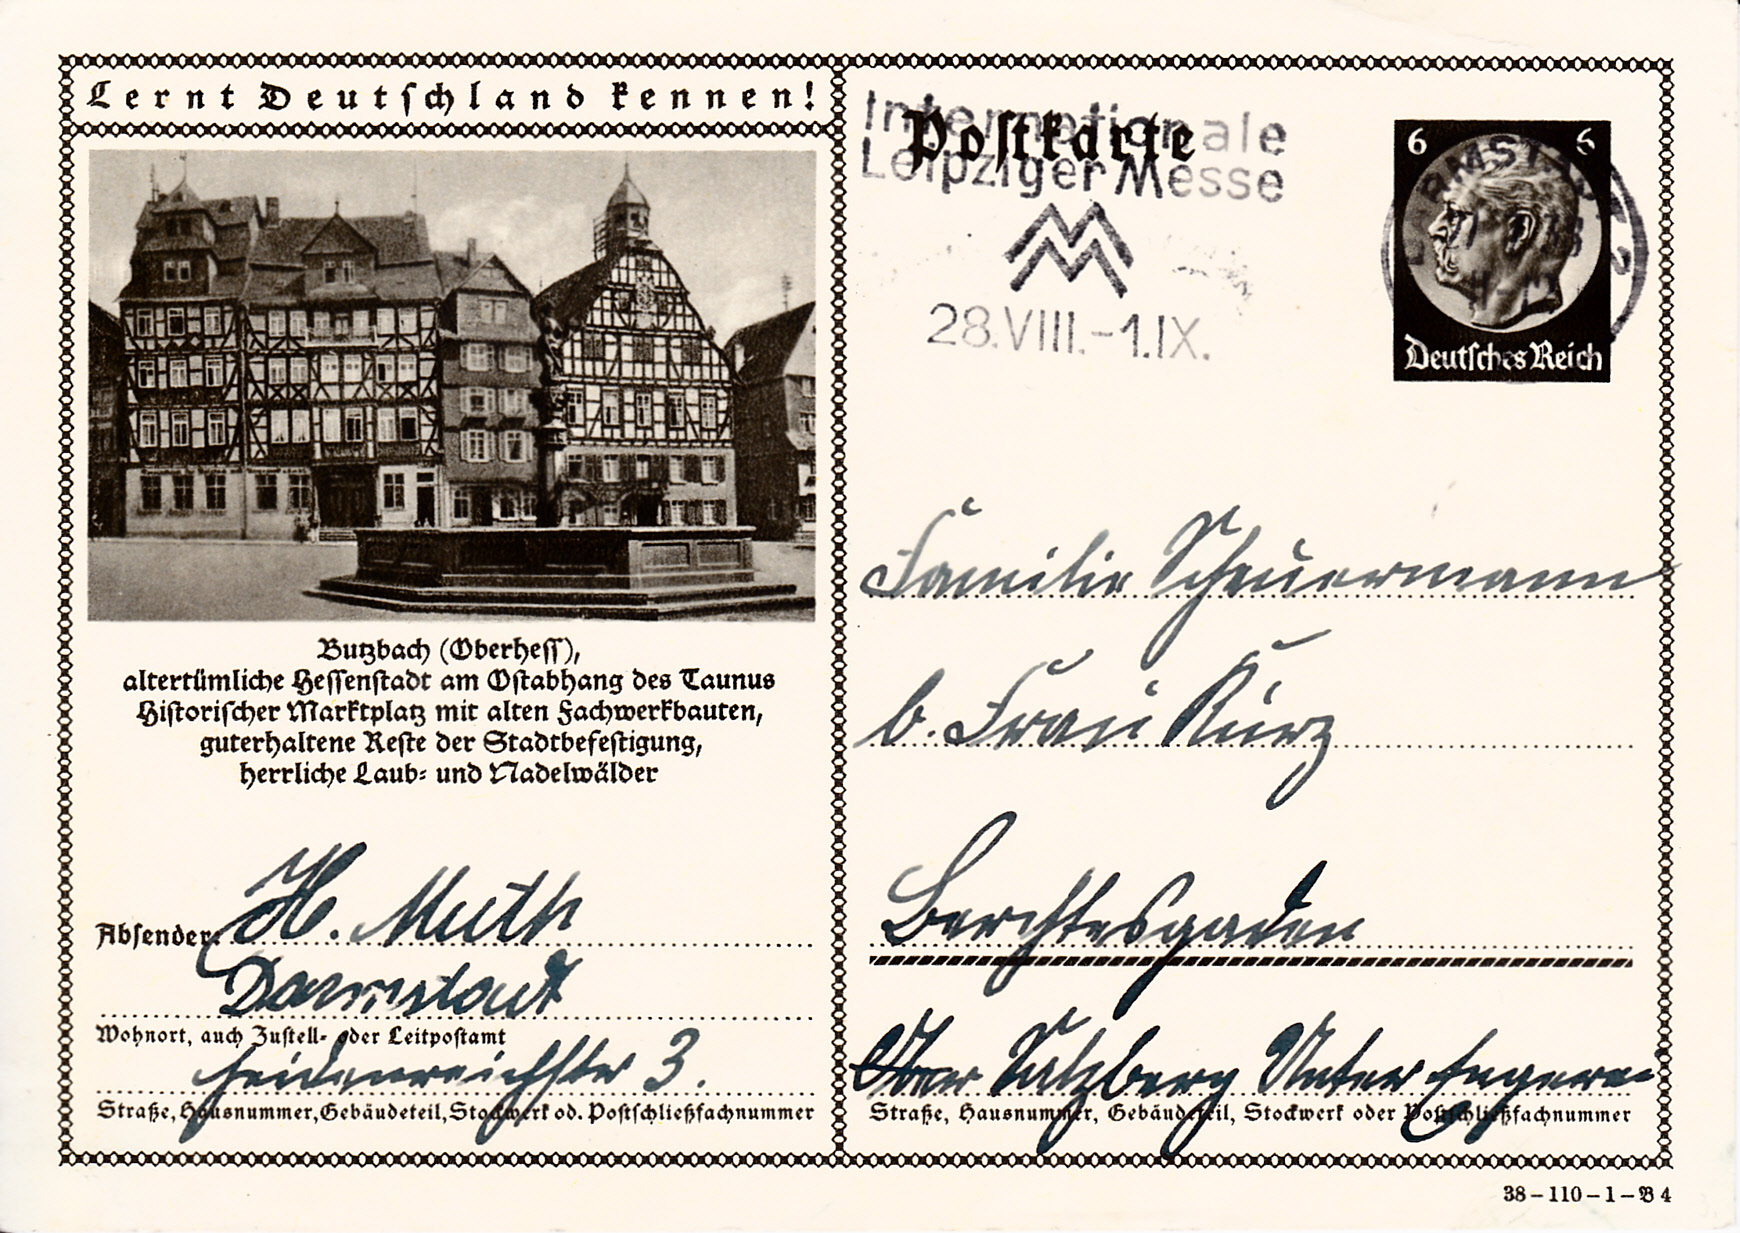 Lernt Deutschland kennen!
Butzbach (Oberhess),
altertümliche Hessenstadt am Ostabhang des Taunus
Historischer Marktplatz mit alten Fachwerkbauten,
guterhaltene Reste der Stadtbefestigung,
herrliche Laub- und Nadelwälder
Absender: H. Muth
Darmstadt
Wohnort, auch Zustell- oder Leitpostamt
Heidenreichstr 3.
Straße, Hausnummer, Gebäudeteil, Stockwerk od. Postschließfachnummer
Postkarte
Internationale
Leipziger Messe
MM
28.VIII.-1.IX.
6 6
DARMSTADT 2
Deutsches Reich
Familie Scheuermann
b. Frau Kurz
Berchtesgaden
Ober Salzberg Unter
Straße, Hausnummer, Gebäudeteil, Stockwerk oder Postschließfachnummer
38-110-1-B 4